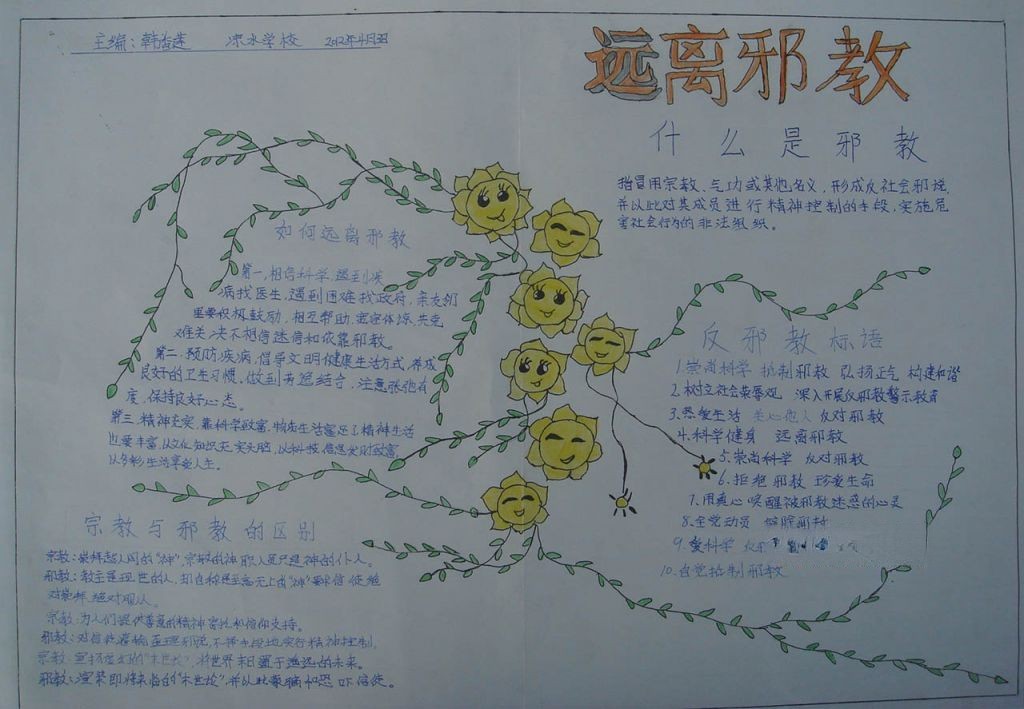 主编：韩 涑水学校 2012年4月
远离邪教
什么是邪教
指冒用宗教、气功或其他名义，形成反社会邪说，
并以此对其成员进行精神控制的手段，实施危
害社会行为的非法组织。
如何远离邪教
第一，相信科学，遇到疾
病找医生，遇到困难找政府，亲友邻
里要积极鼓励，相互帮助，体谅，共克
难关，决不相信迷信和依靠邪教。
第二，预防疾病，倡导文明健康生活方式，养成
良好的卫生习惯，做到劳逸结合，注意张弛有
度，保持良好心态。
第三，精神充实，靠科学致富，物质生活富足了精神生活
也要丰富，以文化知识充实头脑，以科技信息发财致富，
以多彩生活享受人生。
反邪教标语
1.崇尚科学 抵制邪教 弘扬正气 构建和谐
2.树立社会荣辱观 深入开展反邪教警示教育
3.热爱生活 关心他人 反对邪教
4.科学健身 远离邪教
5.崇尚科学 反对邪教
6.拒绝邪教 珍爱生命
7.用真心唤醒被邪教迷惑的心灵
8.全党动员
9.爱科学
10.自觉抵制邪教
宗教与邪教的区别
宗教：崇拜超人间的“神”，宗教的神职人员只是神的仆人。
邪教：教主是现世的人，却自称是至高无上的“神”要求信徒绝
对崇拜绝对服从。
宗教：为人们提供善意的精神寄托和信仰支持。
邪教：对信徒灌输歪理邪说，不择手段地实行精神控制。
宗教：宣扬的“末世论”，将世界末日置于遥远的未来。
邪教：渲染即将来临的“末世论”，并以此蒙骗和恐吓信徒。